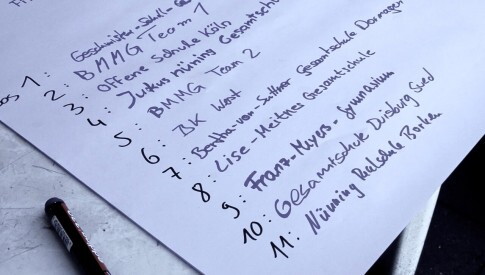 1: Geschwister-Scholl-Ge
2: BMMG Team 1
3: Offene Schule Köln
4: Justus Nüning Gesamtsch
5: BMMG Team 2
6: BK West
7: Bertha-von-Suttner Gesamtschule Dormagen
8: Lise-Meitner Gesamtschule
9: Franz-Meyers-Gymnasium
10: Gesamtschule Duisburg Süd
11: Nünning Realschule Borken